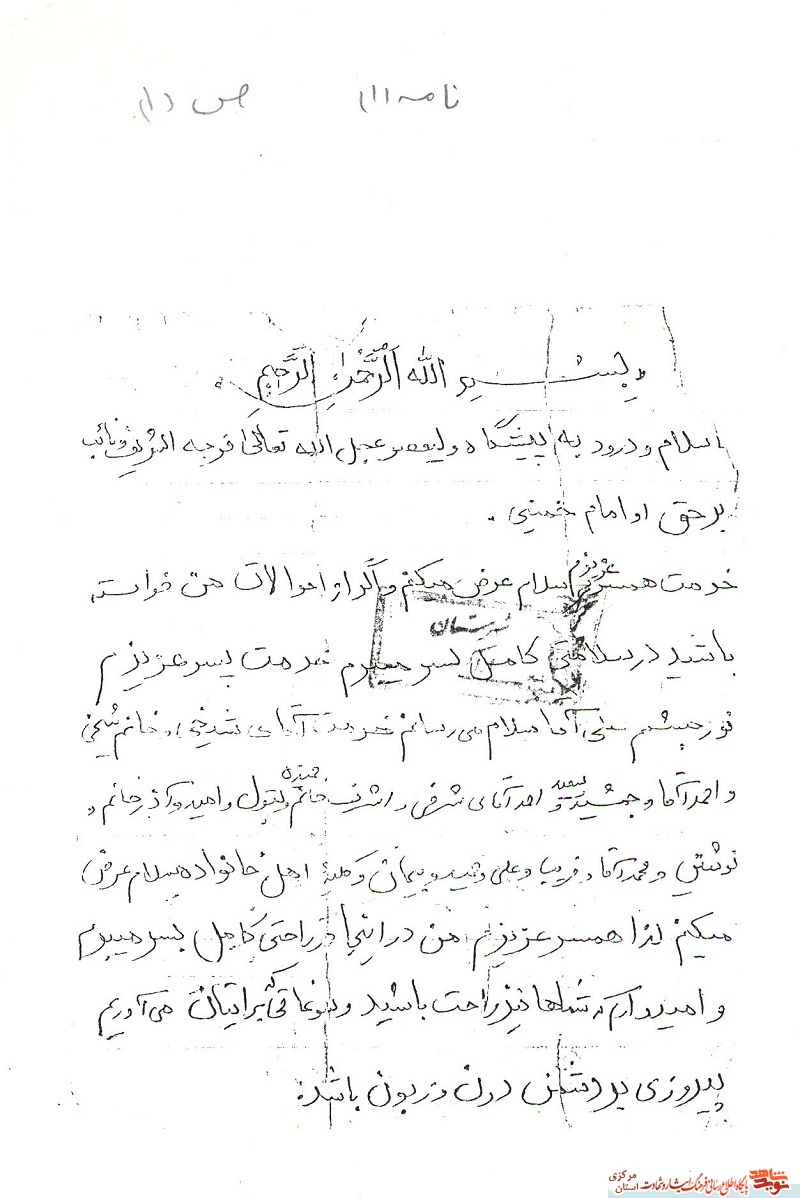 نامه ۱۱۱ ص ۱۵۱
بسم الله الرَّحْمٰنِ الرَّحیمِ
اسلام و درود به پیشگاه ولیعصر عجل الله تعالی فرجه الشریف و نائب
بر حق او امام خمینی.
خدمت همسر عزیزم سلام عرض میکنم و اگر از احوالات من خواسته
باشید در سلامتی کامل بسر میبرم خدمت پسر عزیزم
نور چشم علی آقا سلام می رسانم خدمت آقای شیخی، خانم شیخی
و احمد آقا و جمشید و سعید و احد آقای شرفی و اشرف خانم و بتول و امید و آذر خانم و
نوشین و محمد آقا و فریبا و علی و حمید و پیمان و کلیهٔ اهل خانواده سلام عرض
میکنم لذا همسر عزیزم من در اینجا در راحتی کامل بسر میبرم
و امیدوارم که شماها نیز راحت باشید و سوغاتی که برایتان می آوریم
پیروزی بر دشمن دون و زبون باشد.
نوید شاهد
پایگاه اطلاع رسانی فرهنگ ایثار و شهادت استان مرکزی